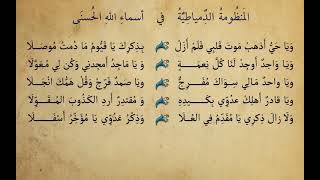 المَنظُومةُ الدِّمياطِيَّةُ في أسماءِ اللهِ الحُسنَى
وَيَا حَيُّ أَذهِبْ مَوتَ قَلبِي فَلَم أَزَل بِذِكرِكَ يَا قَيُّومُ مَا دُمتُ مُوصَلَا
وَيَا وَاجِدُ أَوجِدْ لَنَا كُلَّ نِعمَةٍ وَيَا مَاجِدُ أَمجِدنِي وَكُن لِي مُعَوِّلَا
وَيَا وَاحِدُ مَالِي سِوَاكَ مُفَرِّجٌ وَيَا صَمَدُ فَرِّج وَقُل هَمُّكَ انجَلَا
وَيَا قَادِرُ أَهلِك عَدُوِّي بِكَيدِهِ وَ مُقتَدِرُ أَردِ الكَذُوبَ المُقَوِّلَا
وَلَا زَالَ ذِكرِي يَا مُقَدِّمُ فِي العُلَا وَذِكرُ عَدُوِّي يَا مُؤَخِّرُ أَسفَلَا